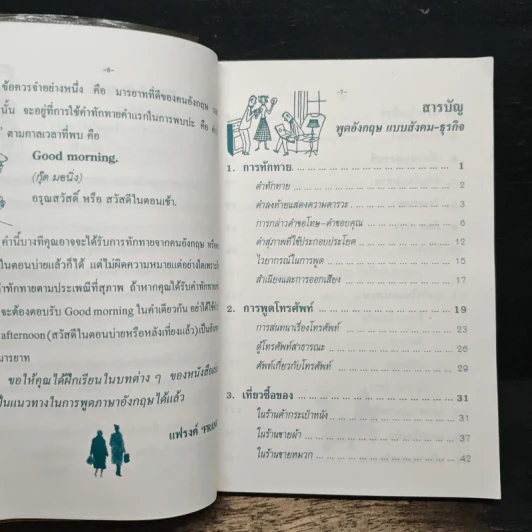 -6-
ข้อควรจำอย่างหนึ่ง คือ มารยาทที่ดีของคนอังกฤษ
นั้น จะอยู่ที่การใช้คำทักทายคำแรกในการพบปะ คือ
ตามกาลเวลาที่พบ คือ
Good morning.
(กู๊ด มอนิ่ง)
อรุณสวัสดิ์ หรือ สวัสดีในตอนเช้า.
คำนี้บางทีคุณอาจจะได้รับการทักทายจากคนอังกฤษ
ในตอนบ่ายแล้วก็ได้ แต่ไม่ผิดความหมายแต่อย่างใด
คำทักทายตามประเพณีที่สุภาพ ถ้าหากคุณได้รับคำทักทาย
จะต้องตอบรับ Good morning ในคำเดียวกัน อย่าได้ใช้
afternoon (สวัสดีในตอนบ่ายหรือหลังเที่ยงแล้ว)
มารยาท
ขอให้คุณได้ฝึกเรียนในบทต่าง ๆ ของหนังสือ
เป็นแนวทางในการพูดภาษาอังกฤษได้แล้ว
แฟรงค์
-7-
สารบัญ
พูดอังกฤษ แบบสังคม-ธุรกิจ
1. การทักทาย ... 1
คำทักทาย ... 2
คำลงท้ายแสดงความคารวะ ... 3
การกล่าวคำขอโทษ-คำขอบคุณ ... 6
คำสุภาพที่ใช้ประกอบประโยค ... 12
ไวยากรณ์ในการพูด ... 15
สำเนียงและการออกเสียง ... 17
2. การพูดโทรศัพท์ ... 19
การสนทนาเรื่องโทรศัพท์ ... 23
ตู้โทรศัพท์สาธารณะ ... 26
ศัพท์เกี่ยวกับโทรศัพท์ ... 29
3. เที่ยวซื้อของ ... 31
ในร้านค้ากระเป๋าหนัง ... 31
ในร้านขายผ้า ... 37
ในร้านขายหมวก ... 42